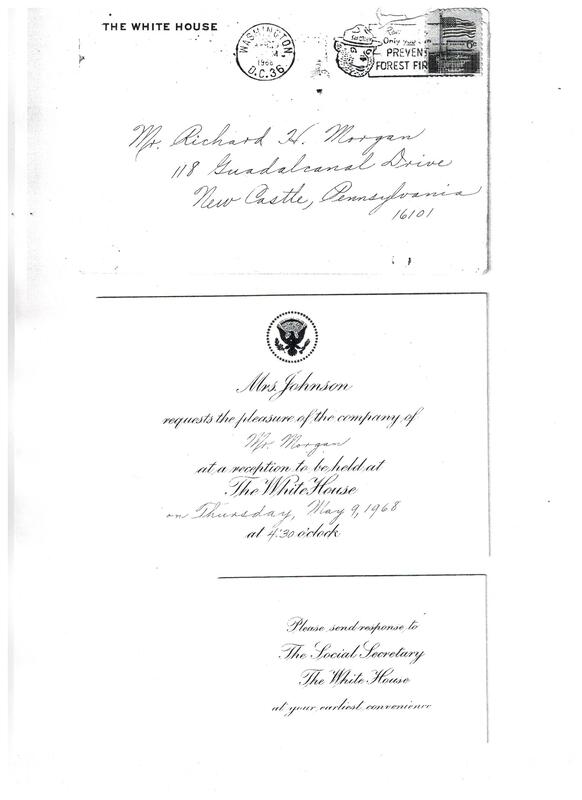 THE WHITE HOUSE
WASHINGTON
1968
D.C. 36
Only you
PREVENT
FOREST FIR
6¢
Mr. Richard H. Morgan
118 Guadalcanal Drive
New Castle, Pennsylvania
16101
Mrs. Johnson
requests the pleasure of the company of
Mr. Morgan
at a reception to be held at
The White House
on Thursday, May 9, 1968
at 4:30 o'clock
Please send response to
The Social Secretary
The White House
at your earliest convenience